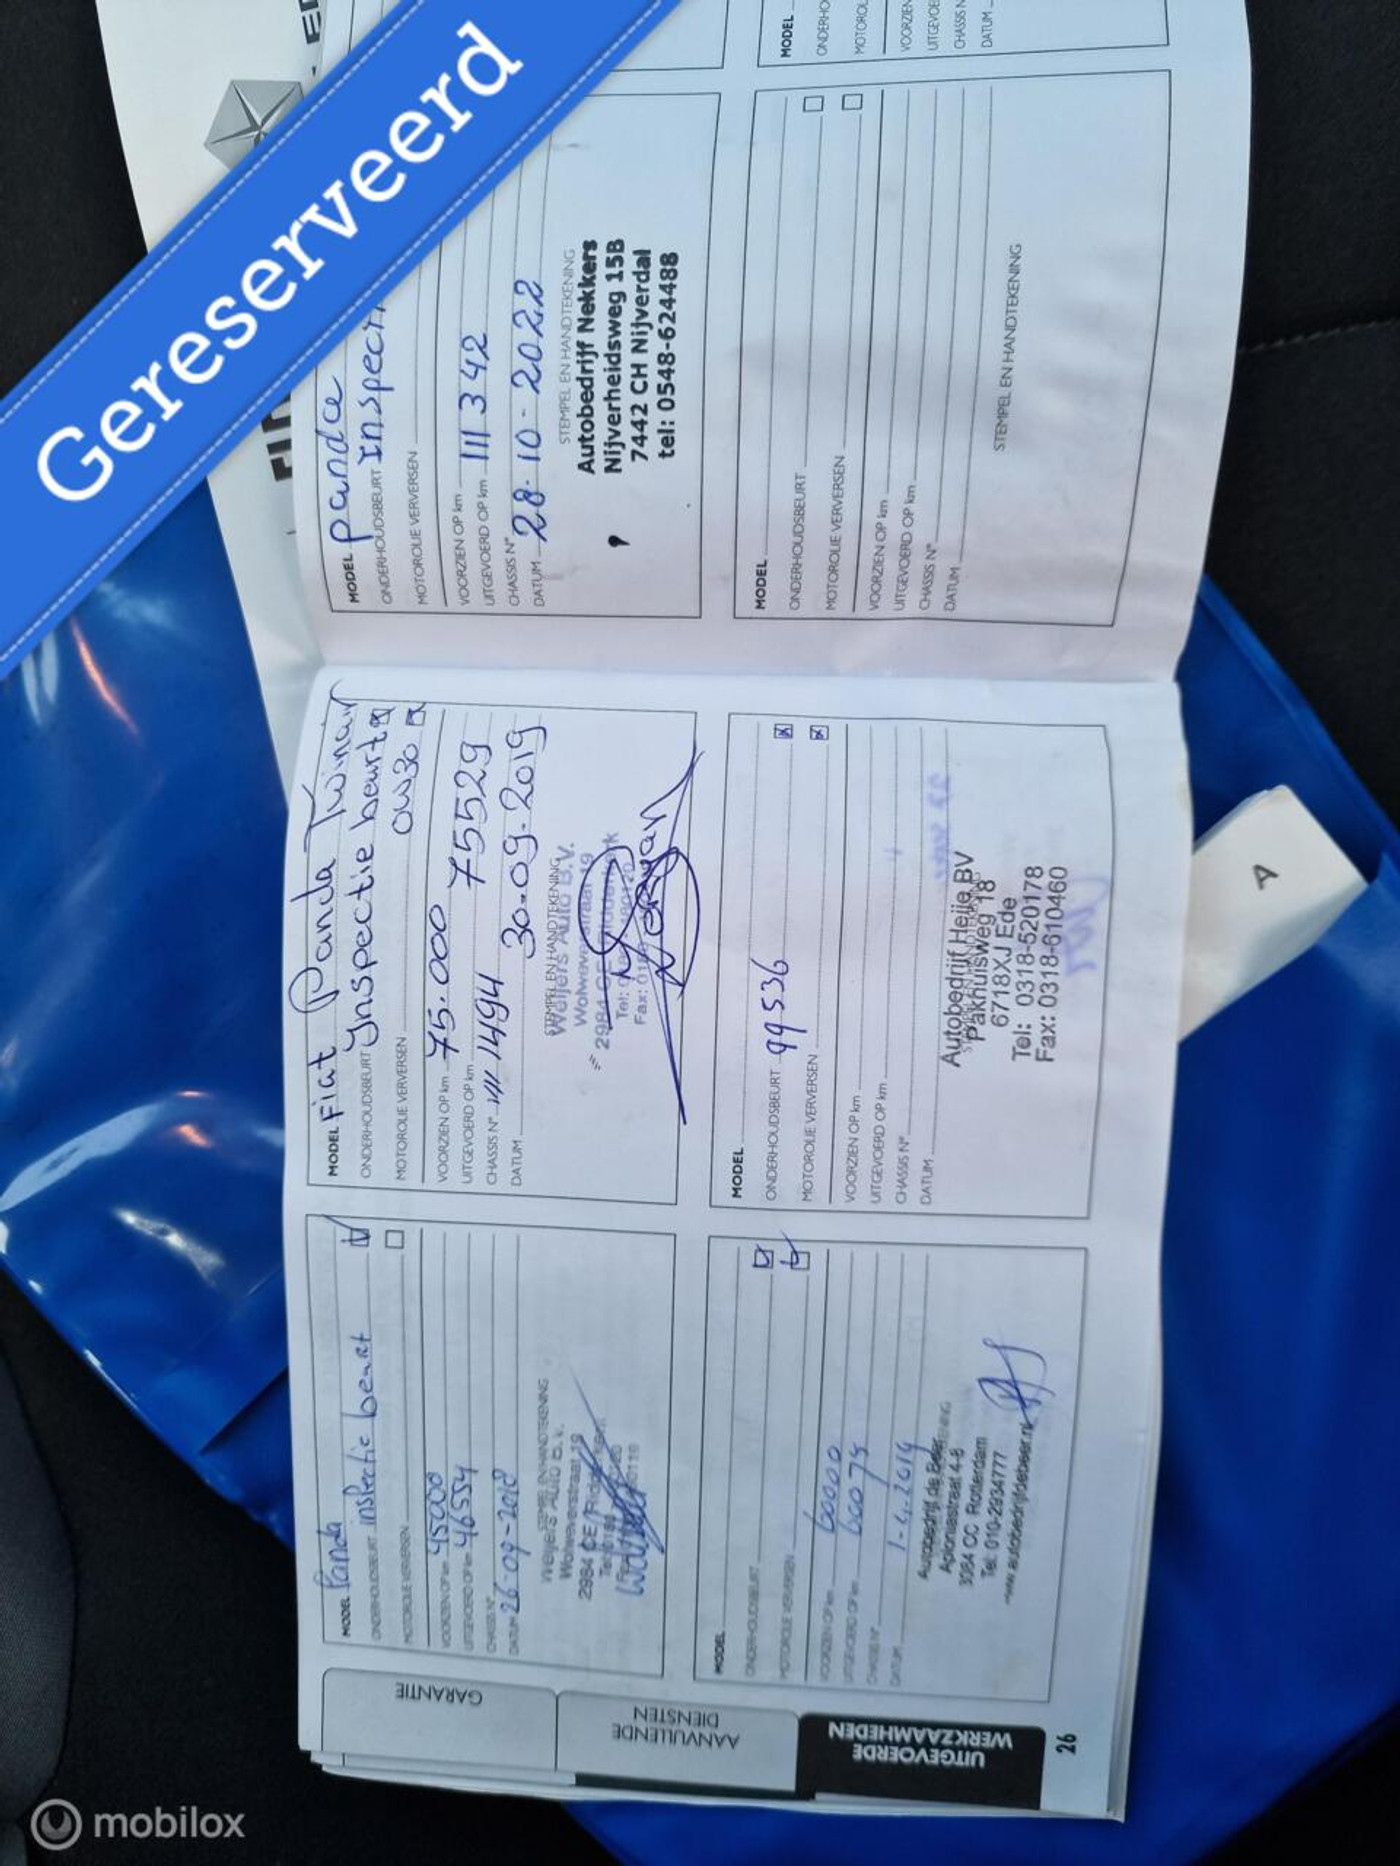 Gereserveerd
MODEL Panda
ONDERHOUDSBEURT inspectie beurt
MOTOROLIE VERVERSEN
VOORZIEN OP km 45000
UITGEVOERD OP km 46554
CHASSIS N°
DATUM 26-09-2018
STEMPEL EN HANDTEKENING
Weijers Auto B.V.
Wolweverstraat 19
2984 CE
MODEL Fiat Panda Twinair
ONDERHOUDSBEURT Inspectie beurt
MOTOROLIE VERVERSEN 0W30
VOORZIEN OP km 75.000
UITGEVOERD OP km 75529
CHASSIS N° 1494
DATUM 30-09-2019
STEMPEL EN HANDTEKENING
Weijers Auto B.V.
Wolweverstraat 19
2984 CE
Tel:
Fax:
MODEL panda
ONDERHOUDSBEURT Inspecti
MOTOROLIE VERVERSEN
VOORZIEN OP km
UITGEVOERD OP km 111342
CHASSIS N°
DATUM 28-10-2022
STEMPEL EN HANDTEKENING
Autobedrijf Nekkers
Nijverheidsweg 15B
7442 CH Nijverdal
tel: 0548-624488
MODEL
ONDERHOUDSBEURT
MOTOROLIE VERVERSEN
VOORZIEN OP km 60000
UITGEVOERD OP km 60074
CHASSIS N°
DATUM 1-4-2019
Autobedrijf de Beer
Aploniastraat 4-8
3084 CC Rotterdam
Tel: 010-2934777
www.autobedrijfdebeer.nl
MODEL
ONDERHOUDSBEURT 99536
MOTOROLIE VERVERSEN
VOORZIEN OP km
UITGEVOERD OP km
CHASSIS N°
DATUM
Autobedrijf Heije BV
Pakhuisweg 18
6718XJ Ede
Tel: 0318-520178
Fax: 0318-610460
MODEL
ONDERHOUDSBEURT
MOTOROLIE VERVERSEN
VOORZIEN OP km
UITGEVOERD OP km
CHASSIS N°
DATUM
STEMPEL EN HANDTEKENING
MODEL
ONDERHO
MOTOROL
VOORZIEN
UITGEVOE
CHASSIS N
DATUM
GARANTIE
AANVULLENDE
DIENSTEN
UITGEVOERDE
WERKZAAMHEDEN
26
A
mobilox